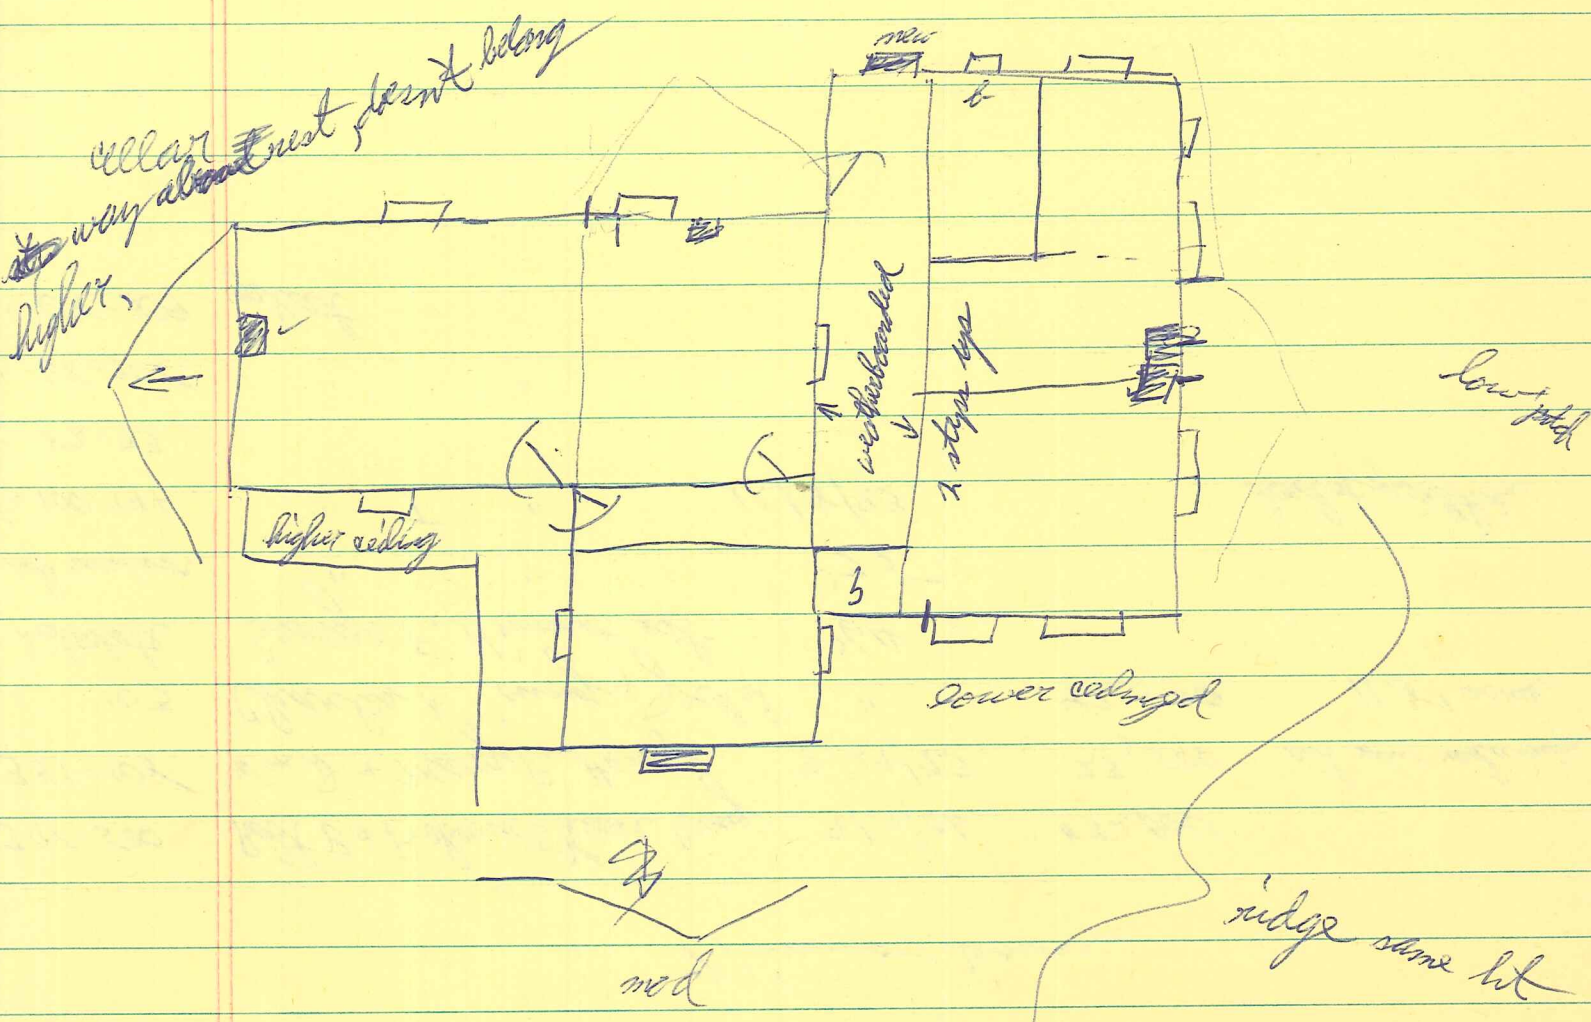 new
cellar rest, doesn't belong
way
higher,
b
weatherboarded
2 steps up
low pitch
higher ceiling
b
lower ceilinged
ridge same ht
mod